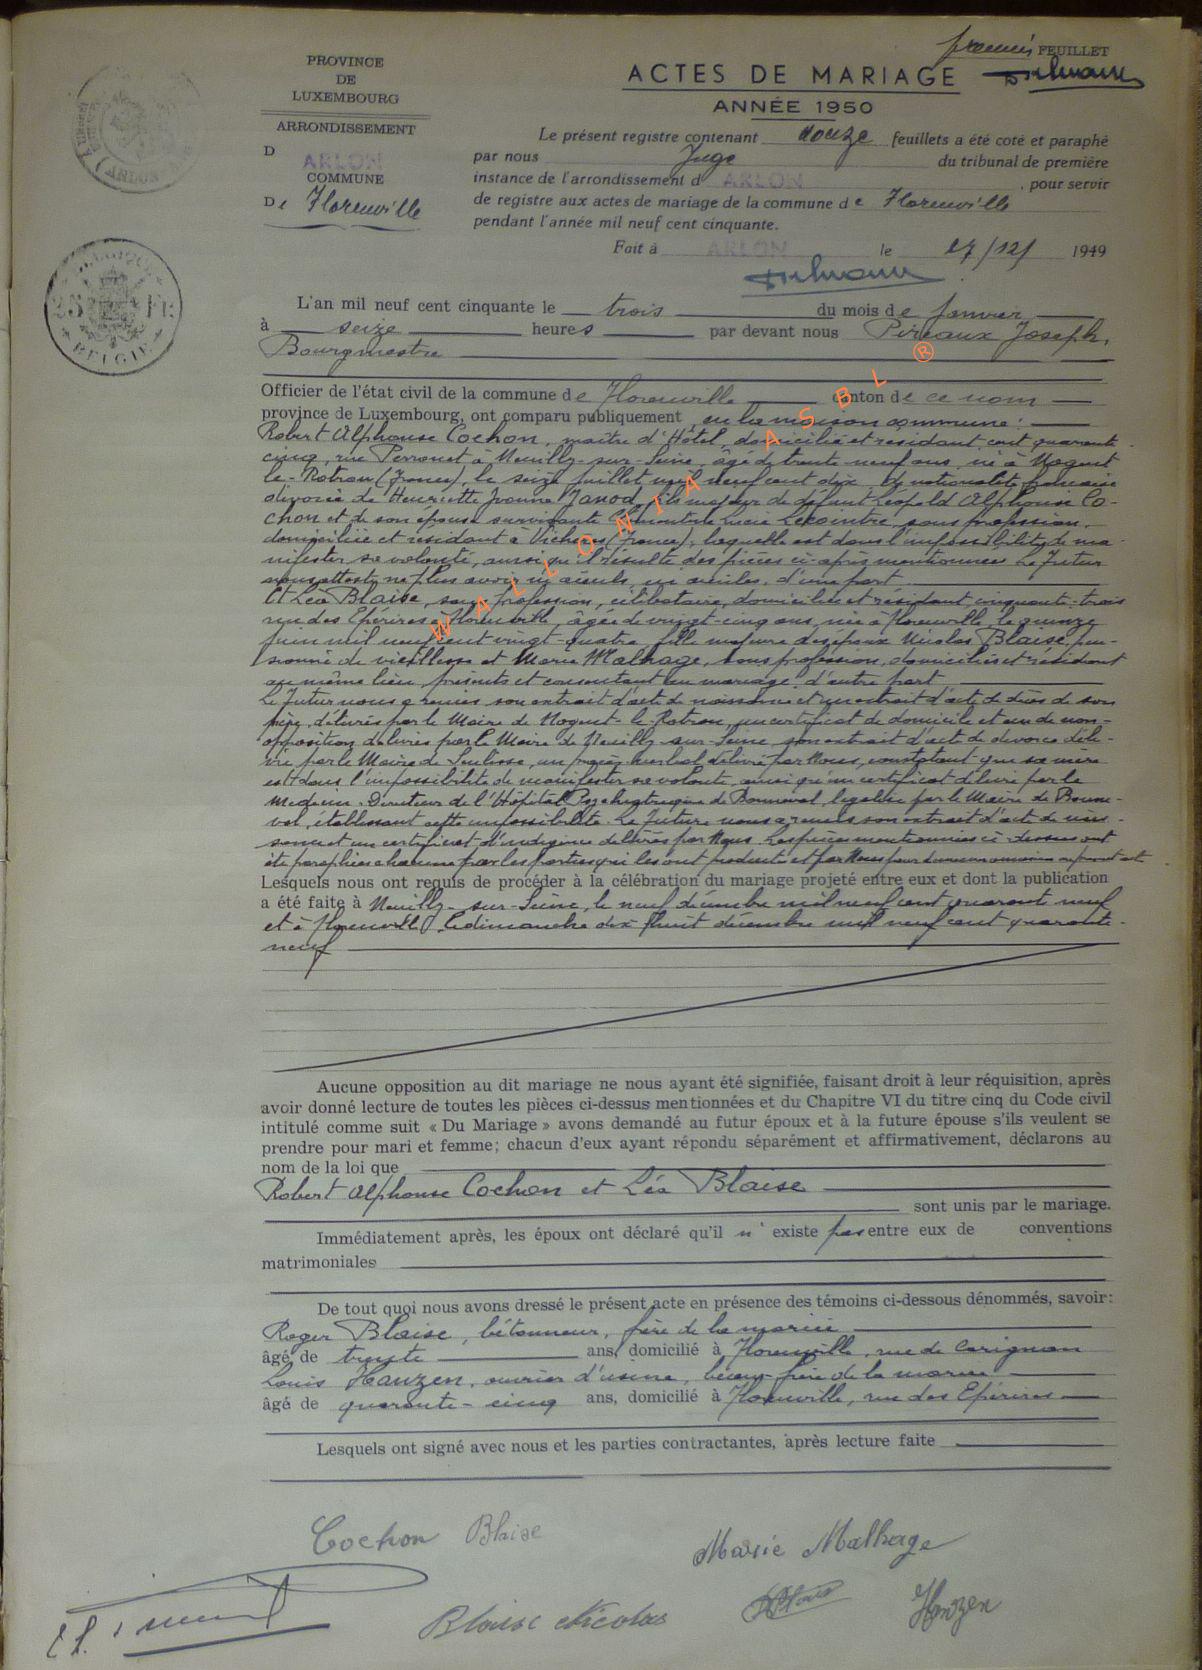 premier FEUILLET
PROVINCE
DE
LUXEMBOURG
ARRONDISSEMENT
D ARLON
COMMUNE
De Florenville
ACTES DE MARIAGE
ANNÉE 1950
Le présent registre contenant douze feuillets a été coté et paraphé
par nous Juge du tribunal de première
instance de l'arrondissement d ARLON, pour servir
de registre aux actes de mariage de la commune de Florenville
pendant l'année mil neuf cent cinquante.
Fait à ARLON le 17/12/ 1949
BELGIQUE
25 FR
BELGIE
L'an mil neuf cent cinquante le trois du mois de janvier
à seize heures par devant nous Pireaux Joseph,
Bourgmestre
Officier de l'état civil de la commune de Florenville canton de ce nom
province de Luxembourg, ont comparu publiquement en la maison commune :
Robert Alphonse Cochon, maître d'Hôtel, domicilié et résidant cent quarante
cinq, rue Perronet, à Neuilly-sur-Seine, âgé de trente neuf ans, né à Nogent
le-Rotrou (France), le seize juillet mil neuf cent dix de nationalité française
divorcé de Henriette Jeanne Janod, fils majeur de défunt Léopold Alphonse Co-
chon et de son épouse survivante Lucie Lecointre, sans profession,
domiciliée et résidant à (France), laquelle est dans l'impossibilité de ma-
nifester sa volonté, ainsi qu'il résulte des pièces ci-après mentionnées Le futur
nous atteste ne plus avoir ni aïeuls, ni aïeules, d'une part
Et Léa Blaise, sans profession, célibataire, domiciliée et résidant cinquante-trois
rue des Epérires à Florenville, âgée de vingt-cinq ans, née à Florenville, le quinze
juin mil neuf cent vingt-quatre, fille majeure des époux Nicolas Blaise, pen-
sionné de vieillesse et Marie Malhage, sans profession, domiciliés et résidant
au même lieu, présents et consentant au mariage d'autre part
Le futur nous a remis son extrait d'acte de naissance et un extrait d'acte de décès de son
père, délivrés par le Maire de Nogent-le-Rotrou, un certificat de domicile et un de non-
opposition délivrés par le Maire de Neuilly-sur-Seine, son extrait d'acte de divorce déli-
vré par le Maire de un procès-verbal délivré par Nous, constatant que sa mère
est dans l'impossibilité de manifester sa volonté, ainsi qu'un certificat délivré par le
Médecin-Directeur de l'Hôpital Psychiatrique de Bonneval, légalisé par le Maire de Bonne-
val, établissant cette impossibilité. La future nous a remis son extrait d'acte de nais-
sance et un certificat d'indigence délivrés par Nous. Les pièces mentionnées ci-dessus ont
été paraphées chacune par les parties qui les ont produites et par Nous pour demeurer annexées au présent acte
Lesquels nous ont requis de procéder à la célébration du mariage projeté entre eux et dont la publication
a été faite à Neuilly-sur-Seine, le neuf décembre mil neuf cent quarante neuf
et à Florenville, le dimanche dix-huit décembre mil neuf cent quarante-
neuf
W A L L O N I A A S B L ®
Aucune opposition au dit mariage ne nous ayant été signifiée, faisant droit à leur réquisition, après
avoir donné lecture de toutes les pièces ci-dessus mentionnées et du Chapitre VI du titre cinq du Code civil
intitulé comme suit « Du Mariage » avons demandé au futur époux et à la future épouse s'ils veulent se
prendre pour mari et femme; chacun d'eux ayant répondu séparément et affirmativement, déclarons au
nom de la loi que
Robert Alphonse Cochon et Léa Blaise
sont unis par le mariage.
Immédiatement après, les époux ont déclaré qu'il n'existe pas entre eux de conventions
matrimoniales
De tout quoi nous avons dressé le présent acte en présence des témoins ci-dessous dénommés, savoir:
Roger Blaise, bétonneur, frère de la mariée
âgé de trente ans, domicilié à Florenville, rue de Carignan
Louis Hanzen, ouvrier d'usine, beau-frère de la mariée
âgé de quarante-cinq ans, domicilié à Florenville, rue des Epérires
Lesquels ont signé avec nous et les parties contractantes, après lecture faite
Cochon Blaise Marie Malhage
Blaise Nicolas Hanzen